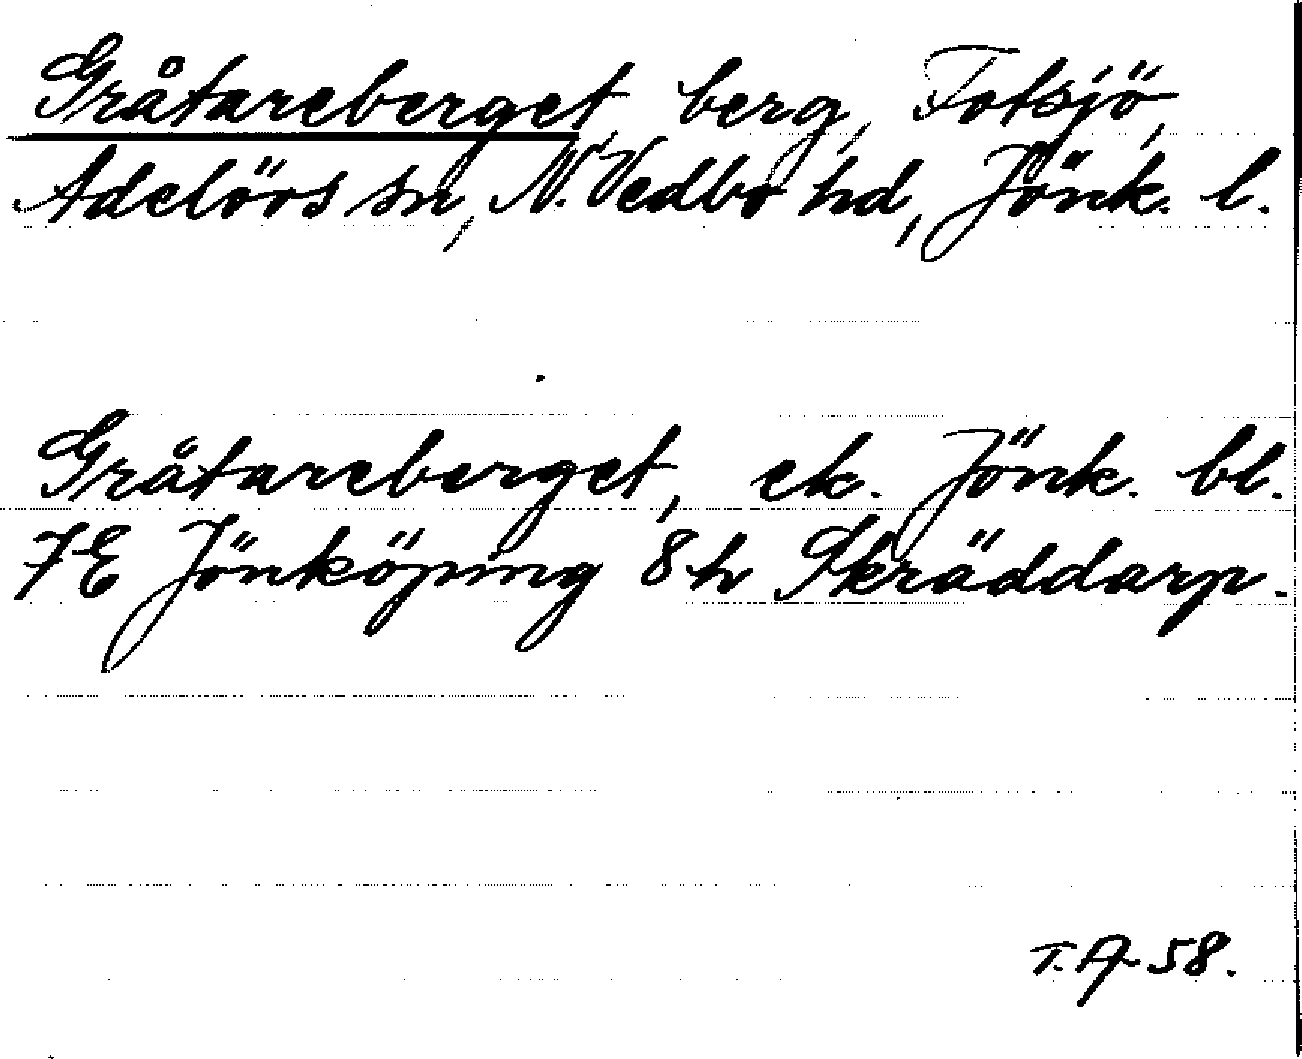 Gråtareberget, berg, Fotsjö,
Adelövs sn, N. Vedbo hd, Jönk. l.
Gråtareberget, ek. Jönk. bl.
7E Jönköping 8h Skräddarp.
T. A-58.